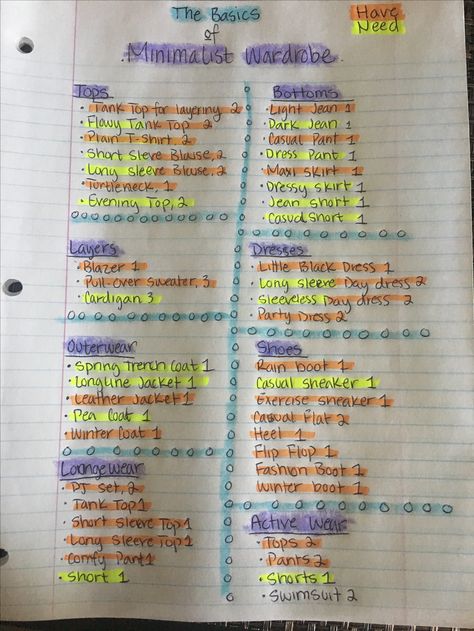 The Basics
of
Minimalist Wardrobe.
Have
Need
Tops
• Tank Top for layering 2
• Flowy Tank Top 2
• Plain T-Shirt 2
• Short Sleeve Blouse, 2
• Long sleeve Blouse, 2
• Turtleneck, 1
• Evening Top, 2
Bottoms
• Light Jean 1
• Dark Jean 1
• Casual Pant 1
• Dress Pant 1
• Maxi skirt 1
• Dressy skirt 1
• Jean short 1
• Casual short 1
Layers
• Blazer 1
• Pull-Over Sweater, 3
• Cardigan 3
Dresses
• Little Black Dress 1
• Long sleeve Day dress 2
• Sleeveless Day dress 2
• Party Dress 2
Outerwear
• Spring Trench Coat 1
• Longline Jacket 1
• Leather Jacket 1
• Pea Coat 1
• Winter Coat 1
Shoes
Rain boot 1
Casual sneaker 1
Exercise sneaker 1
Casual Flat 2
Heel 1
Flip Flop 1
Fashion Boot 1
Winter boot 1
Loungewear
• PJ set, 2
• Tank Top 1
• Short sleeve Top 1
• Long sleeve Top 1
• Comfy Pant 1
• Short 1
Active Wear
• Tops 2
• Pants 2
• Shorts 1
• Swimsuit 2